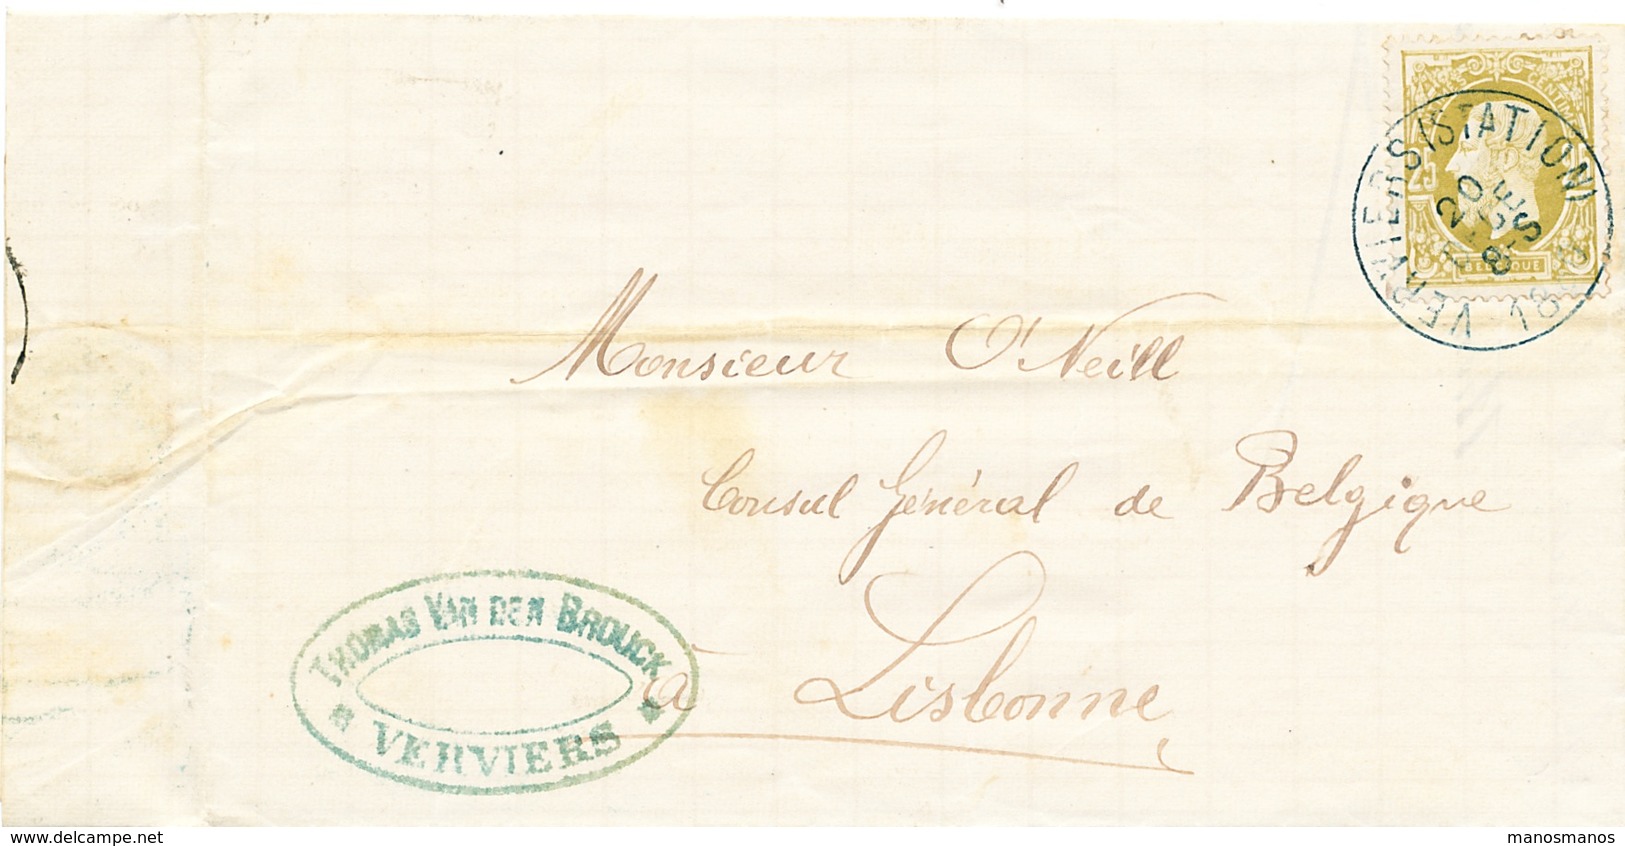 CENTIMES
25
BELGIQUE
VERVIERS (STATION)
20
DÉCE
8-S
Monsieur O'Neill
Consul Général de Belgique
à Lisbonne
THOMAS VAN DEN BROUCK
* VERVIERS *
www.delcampe.net
manosmanos